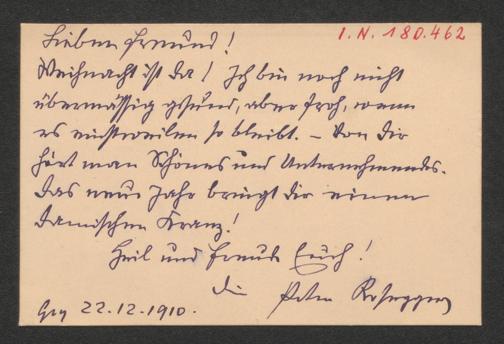 I.N. 180.462
Lieber Freund!
Weihnacht ist da! Ich bin noch nicht
übermässig gesund, aber froh, wenn
es einstweilen so bleibt. – Von Dir
hört man Schönes und Unternehmendes.
Das neue Jahr bringt Dir einen
Heil und Freude Euch!
Dein Peter Rosegger
22.12.1910.